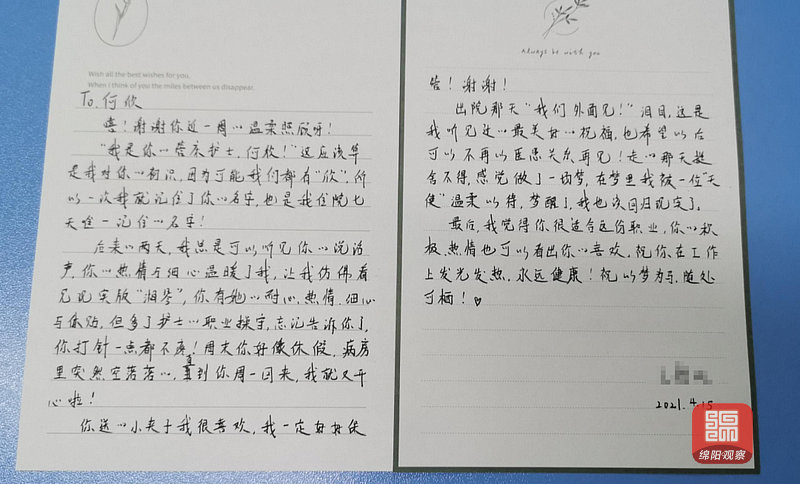 Wish all the best wishes for you,
When I think of you the miles between us disappear.
To. 何欣
嘻！谢谢你近一周以温柔照顾呀！
“我是你以管床护士，何欣！”这应该算
是我对你以初识，因为可能我们都有“欣”，所
以一次我就记住了你以名字，也是我住院七
天唯一记住以名字！
后来以两天，我总是可以听见你以说话
声，你以热情与细心温暖了我，让我仿佛看
见现实版“湘琴”，你有她以耐心、热情、细心
与体贴，但多了护士以职业操守，忘记告诉你了，
你打针一点都不疼！周末你好像休假，病房
里突然空落落以，直到你周一回来，我就又开
心啦！
你送以小夹子我很喜欢，我一定好好保
Always be with you
管！谢谢！
出院那天“我们外面见！”泪目，这是
我听见过以最美好以祝福，也希望以后
可以不再以医患关系再见！走以那天挺
舍不得，感觉做了一场梦，在梦里我被一位“天
使”温柔以待，梦醒了，我也该回归现实了。
最后，我觉得你很适合这份职业，你以积
极、热情也可以看出你以喜欢，祝你在工作
上发光发热，永远健康！祝以梦为马，随处
可栖！♥
2021.4.15
绵阳观察